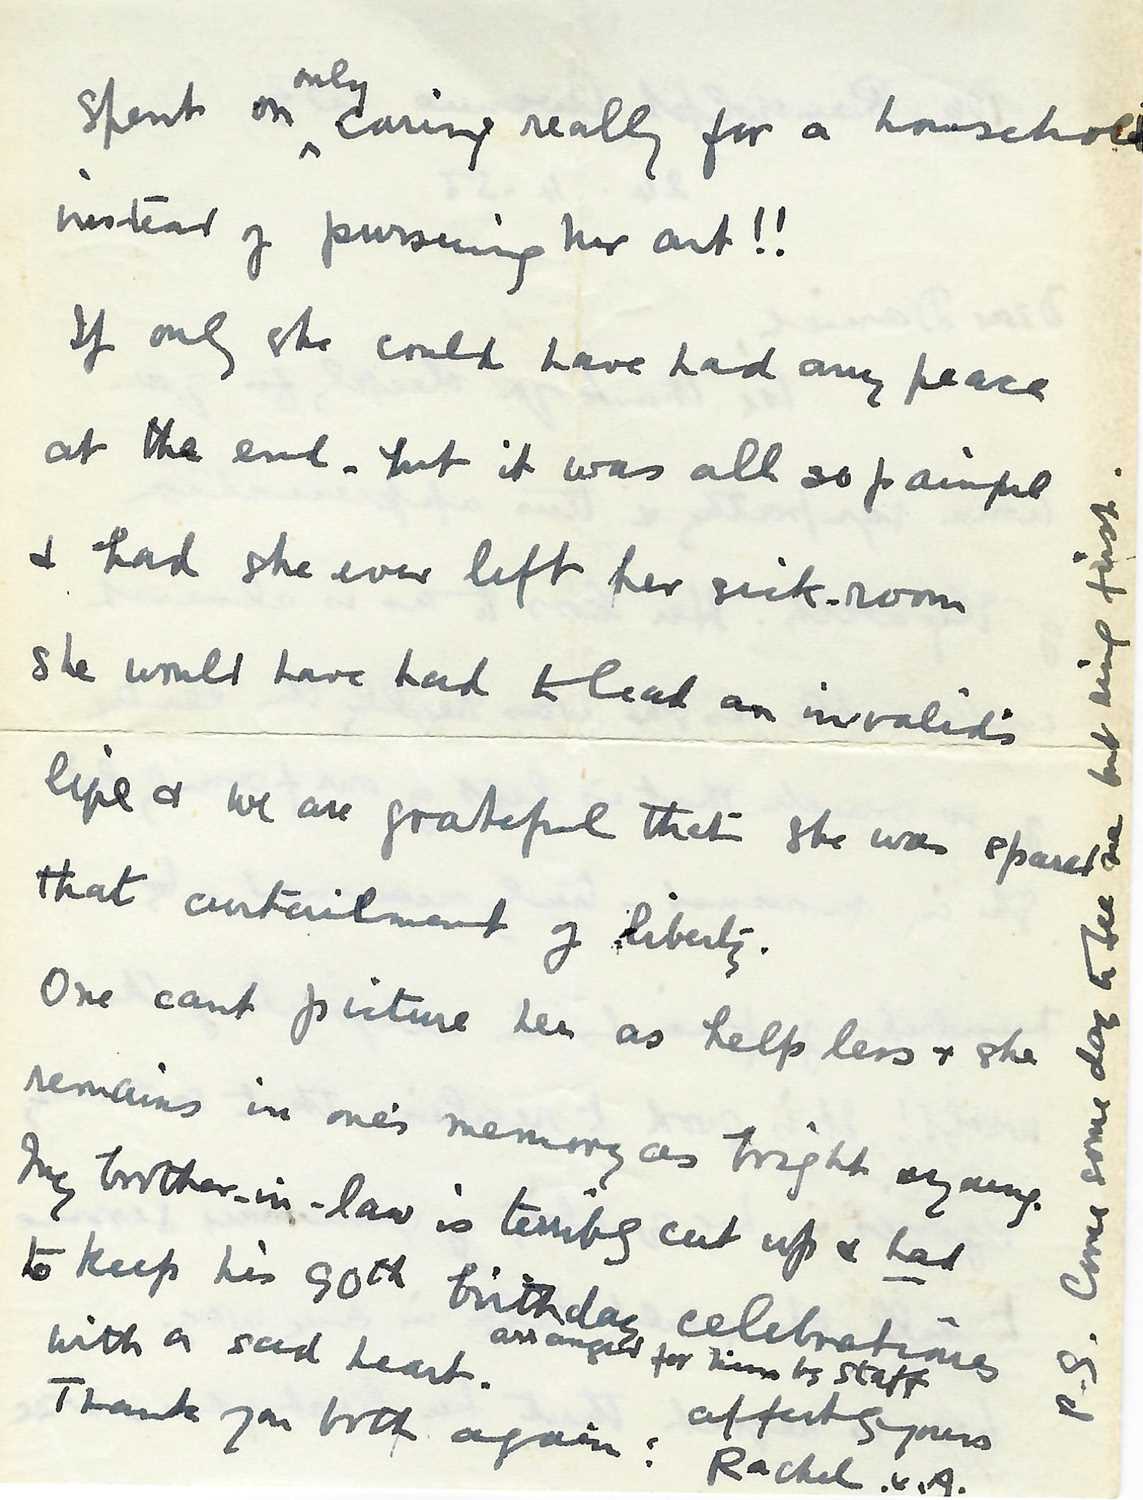 spent on only caring really for a household
instead of pursuing her art!!
If only she could have had any peace
at the end - but it was all so painful
& had she ever left her sick-room
she would have had to lead an invalid's
life & we are grateful that she was spared
that curtailment of liberty.
One cant picture her as helpless & she
remains in one's memory as bright & young.
My brother-in-law is terribly cut up & had
to keep his 90th birthday celebrations
arranged for him by staff
with a sad heart.
Thank you both again:
affectly yours
Rachel v. A.
P.S. Come some day to see me but ring first.